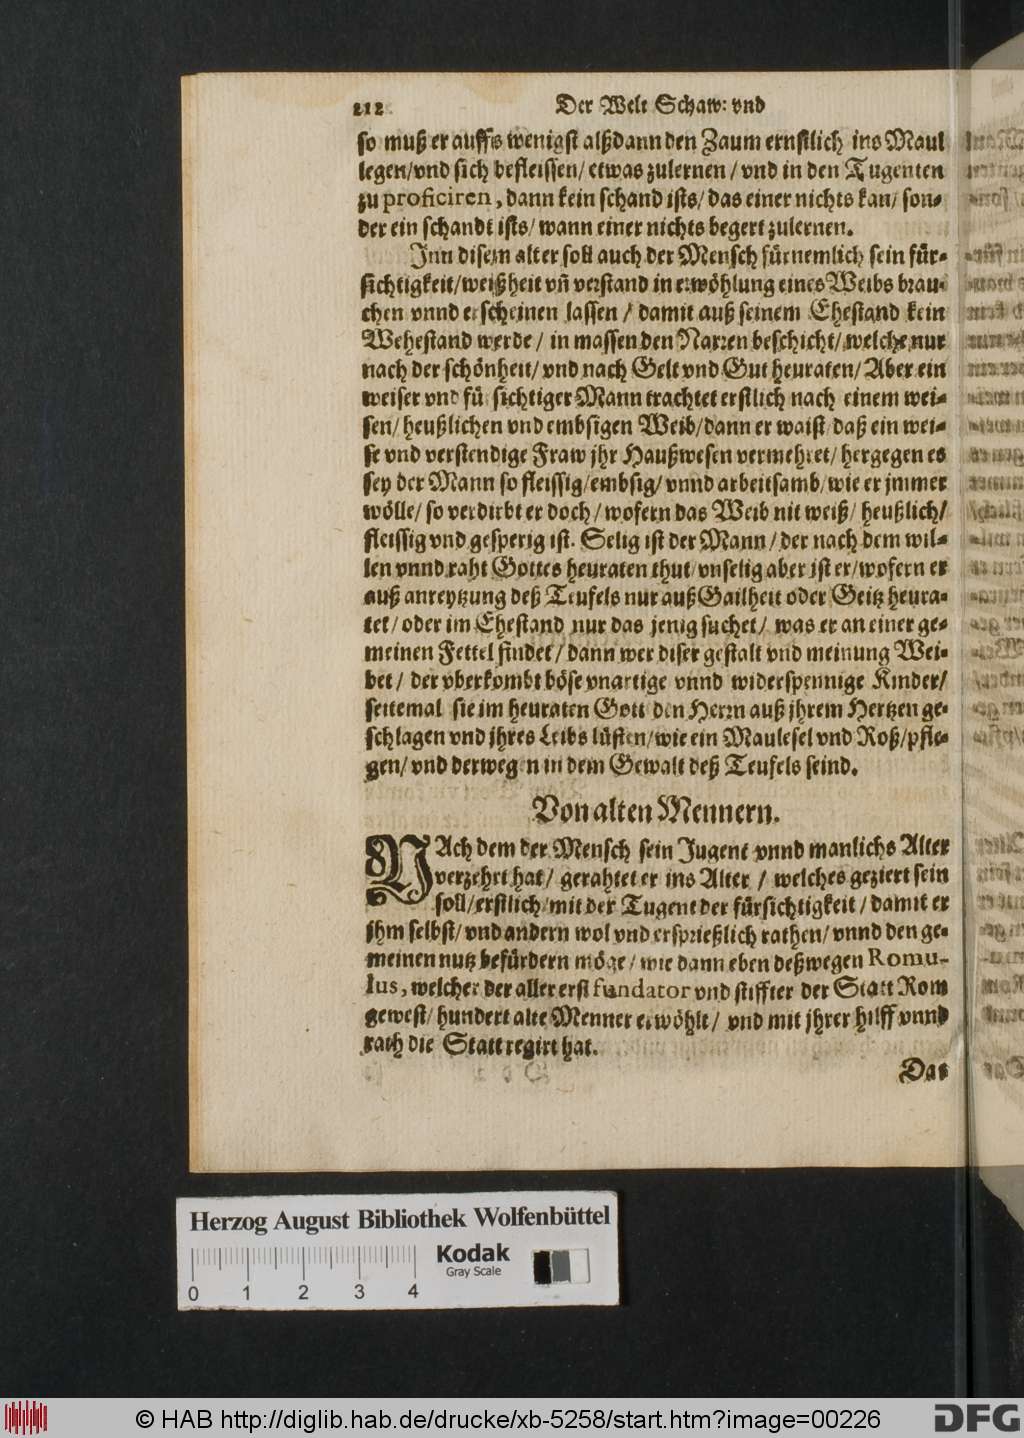 212 Der Welt Schaw: vnd
so muß er auffs wenigst alßdann den Zaum ernstlich ins Maul
legen/vnd sich befleissen/ etwas zulernen / vnd in den Tugenten
zu proficiren, dann kein schand ists/ das einer nichts kan/ son-
der ein schandt ists/ wann einer nichts begert zulernen.
Inn disem alter soll auch der Mensch fürnemlich sein für-
sichtigkeit/weißheit vñ verstand in erwöhlung eines Weibs brau-
chen vnnd erscheinen lassen / damit auß seinem Ehestand kein
Wehestand werde / in massen den Narren beschicht/ welche nur
nach der schönheit/ vnd nach Gelt vnd Gut heuraten/ Aber ein
weiser vnd fürsichtiger Mann trachtet erstlich nach einem wei-
sen/ heußlichen vnd embsigen Weib/dann er waist daß ein wei-
se vnd verstendige Fraw jhr Haußwesen vermehret/ hergegen es
sey der Mann so fleissig/embsig/ vnnd arbeitsamb/wie er jmmer
wölle/ so verdirbt er doch/ wofern das Weib nit weiß/ heußlich/
fleissig vnd gesperig ist. Selig ist der Mann / der nach dem wil-
len vnnd raht Gottes heuraten thut/ vnselig aber ist er/wofern er
auß anreytzung deß Teufels nur auß Gailheit oder Geitz heura-
tet/ oder im Ehestand nur das jenig suchet/ was er an einer ge-
meinen Fettel findet/ dann wer diser gestalt vnd meinung Wei-
bet/ der vberkombt böse vnartige vnnd widerspennige Kinder/
seitemal sie im heuraten Gott den Herrn auß jhrem Hertzen ge-
schlagen vnd jhres Leibs lüsten/wie ein Maulesel vnd Roß/pfle-
gen/ vnd derwegen in dem Gewalt deß Teufels seind.
Von alten Mennern.
NAch dem der Mensch sein Jugent vnnd manlichs Alter
verzehrt hat/ gerahtet er ins Alter / welches geziert sein
soll/ erstlich/mit der Tugent der fürsichtigkeit / damit er
jhm selbst/ vnd andern wol vnd ersprießlich rathen/ vnnd den ge-
meinen nutz befürdern möge/ wie dann eben deßwegen Romu-
lus, welcher der aller erst fundator vnd stiffter der Statt Rom
gewest/ hundert alte Menner erwöhlt/ vnd mit jhrer hilff vnnd
rath die Statt regirt hat.
Das
Herzog August Bibliothek Wolfenbüttel
Kodak
Gray Scale
0 1 2 3 4
© HAB http://diglib.hab.de/drucke/xb-5258/start.htm?image=00226
DFG